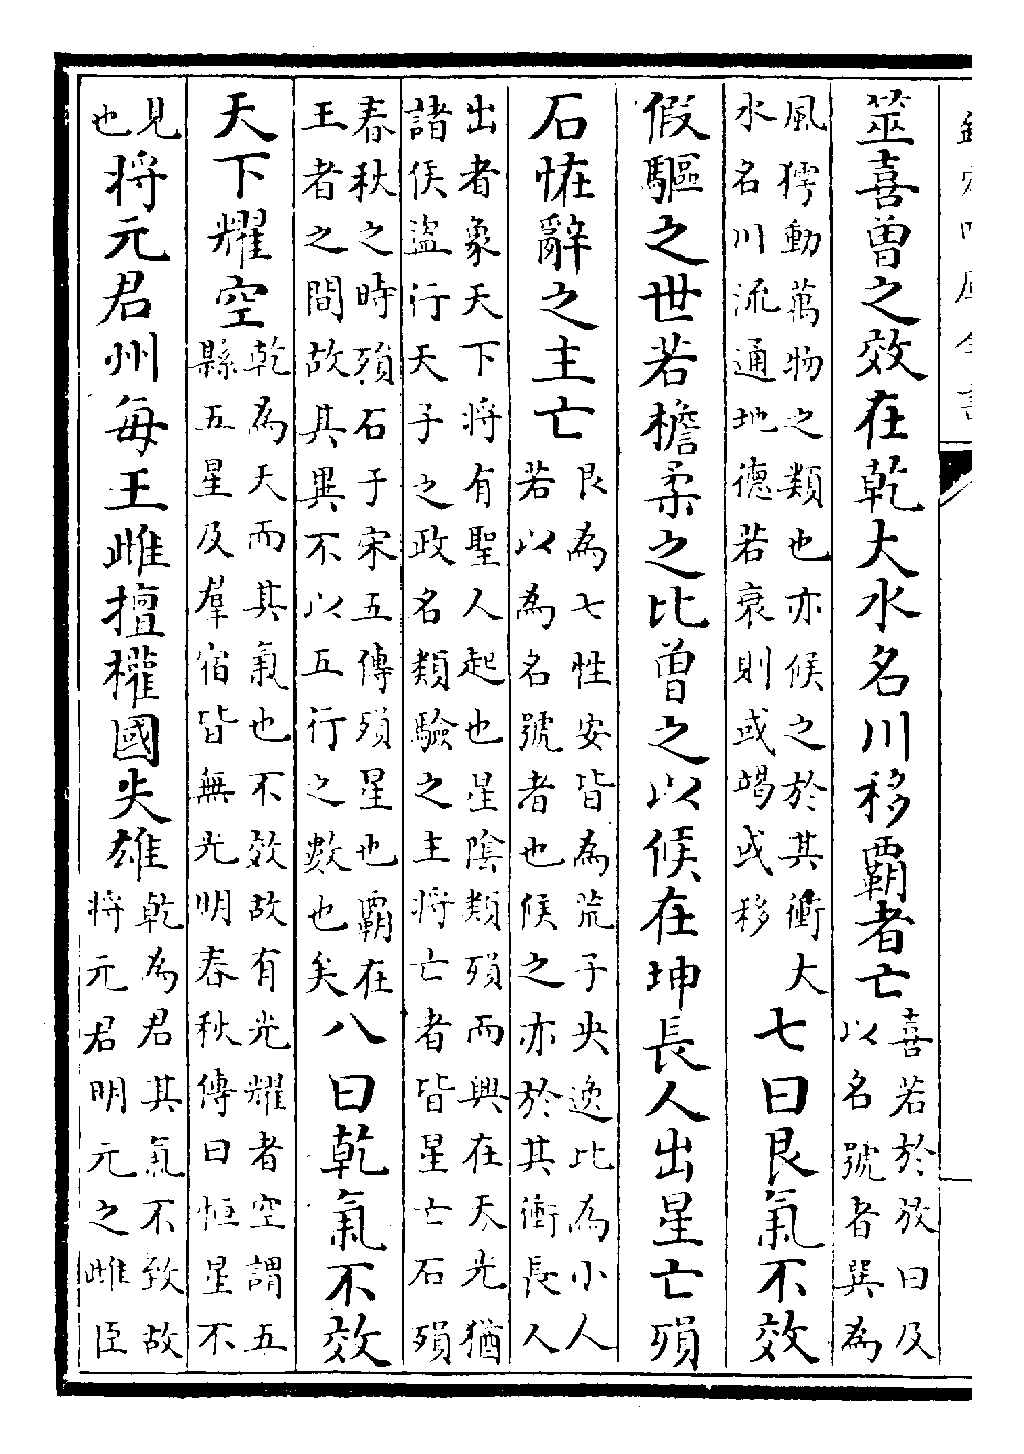 欽定四庫全書
筮喜曽之效在乾大水名川移覇者亡喜若於放曰及以名號者巽為
風㺒動萬物之類也亦候之於其衝大水名川流通地德若衰則或竭或移七曰艮氣不效
假驅之世若檐柔之比曽之以候在坤長人出星亡殞
石恠辭之主亡艮為七性安皆為荒子央逸比為小人若以為名號者也候之亦於其衝長人
出者象天下將有聖人起也星隂類殞而興在天光猶諸侯盜行天子之政名類驗之主將亡者皆星亡石殞
春秋之時殞石于宋五傳殞星也覇在王者之間故其異不以五行之數也矣八曰乾氣不效
天下耀空乾為天而其氣也不效故有光耀者空謂五縣五星及羣宿皆無光明春秋傳曰恒星不
見也將元君州每王雌擅權國失雄乾為君其氣不致故將元君明元之雌臣